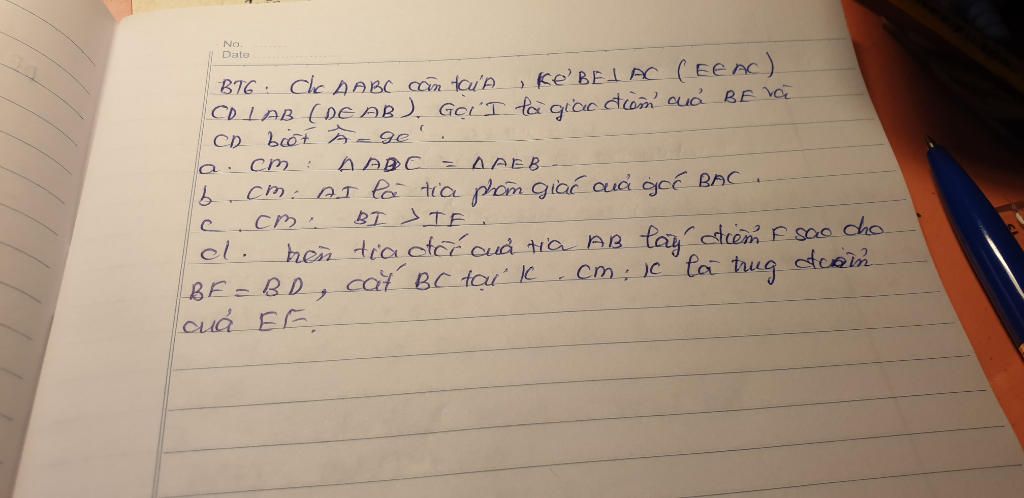 No.
Date
BT6: Cho ΔABC cân tại A, kẻ BE⊥AC (E∈AC)
CD⊥AB (D∈AB). Gọi I là giao điểm của BE và
CD biết Â = 90°.
a. CM: ΔADC = ΔAEB
b. CM: AI là tia phân giác của góc BAC.
c. CM: BI > IE.
d. trên tia đối của tia AB lấy điểm F sao cho
BF = BD, cắt BC tại K. CM: K là trung điểm
của EF.